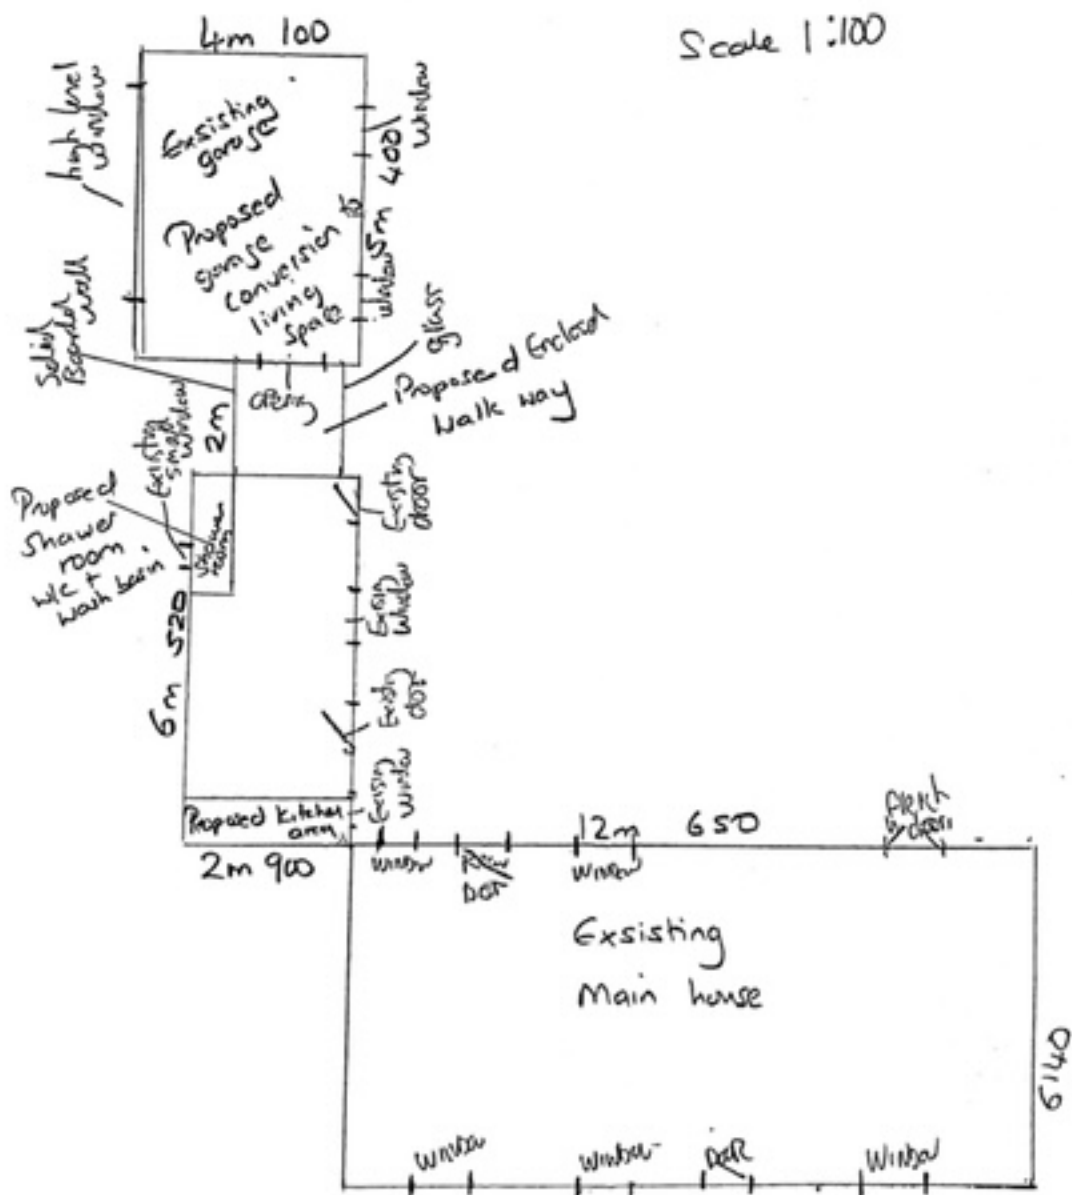 Scale 1:100
4m 100
high level
window
Exsisting
garage
window
5m 400
Proposed
garage
conversion
living
space
window
Solid
Boarded
wall
glass
opening
Proposed Enclosed
walk way
2m
Existing
small
window
Proposed
shower
room
w/c +
wash basin
shower
room
Existing
door
Existing
window
6m 520
Existing
door
Existing
window
Proposed Kitchen
area
2m 900
12m 650
window
Door
window
French
doors
Exsisting
Main house
6140
window
window
Door
window